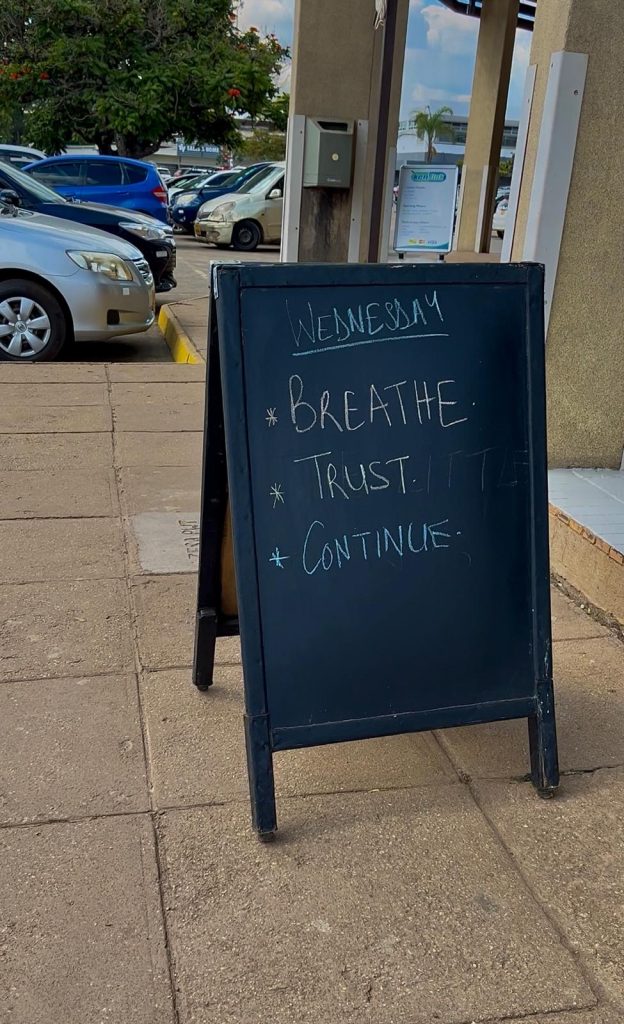 WEDNESDAY
* BREATHE.
* TRUST.
* CONTINUE.